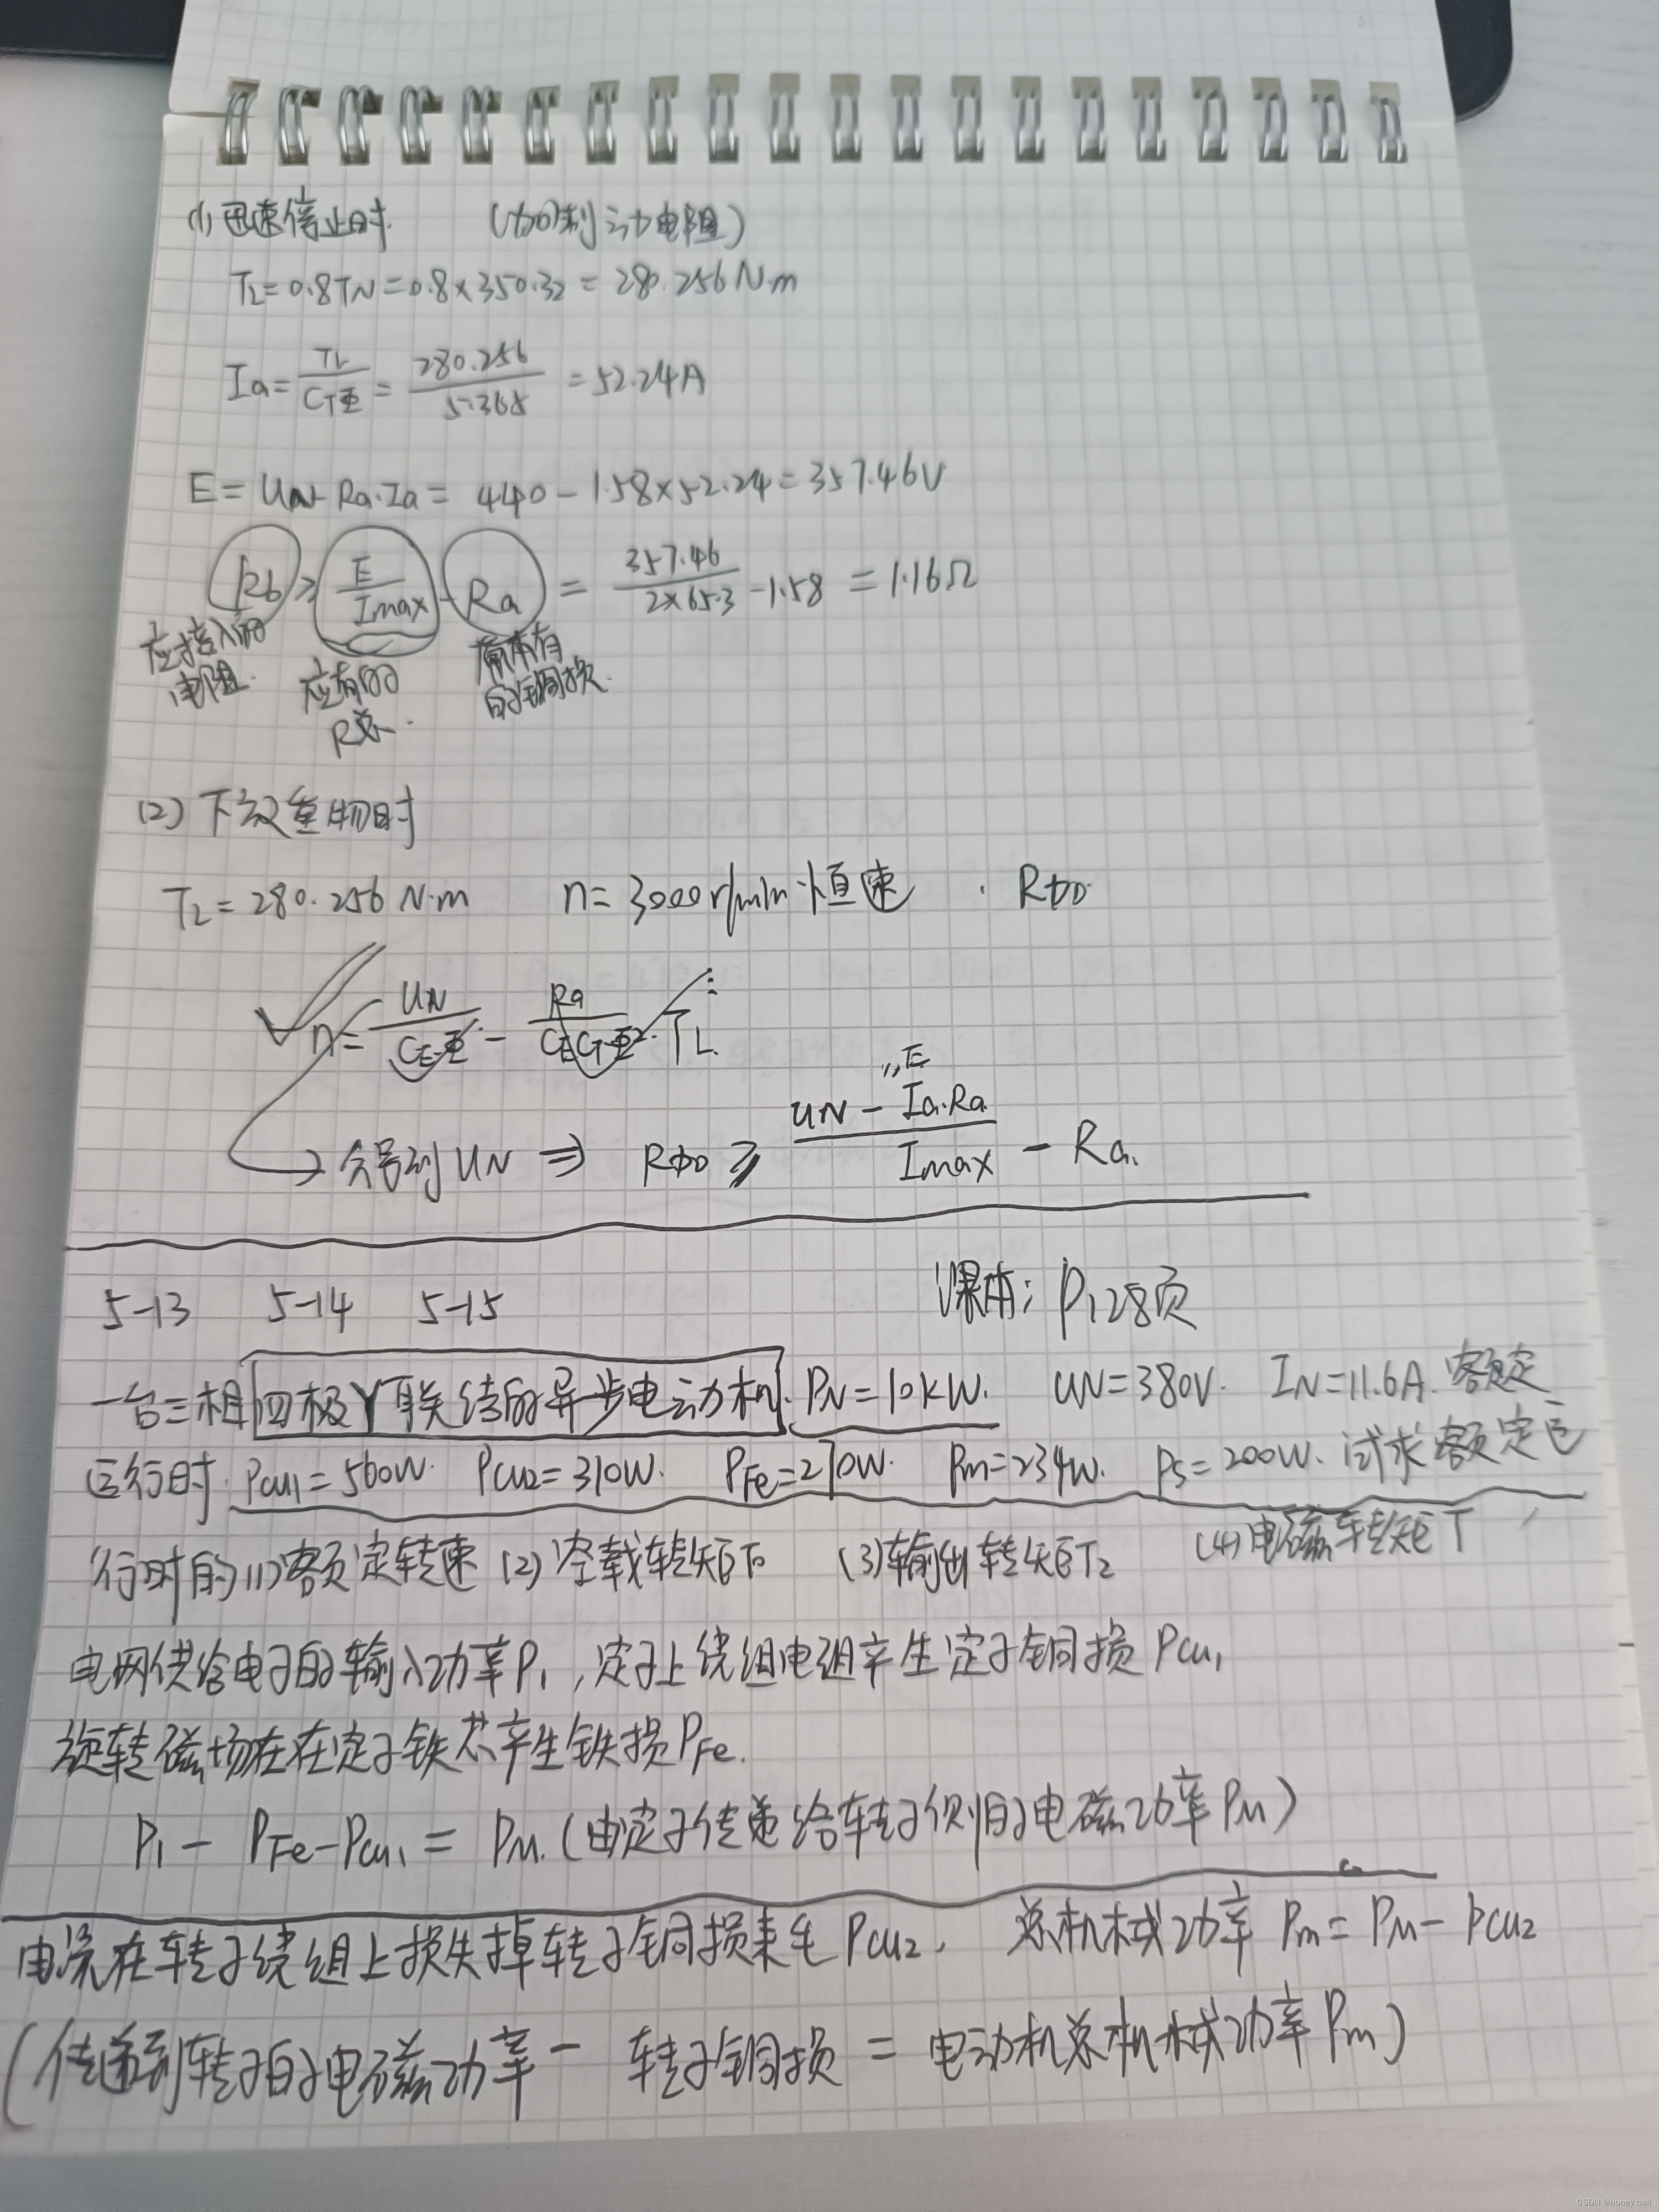 (1) 迅速停止时 (加制动电阻)
TL=0.8TN=0.8×350.32=280.256N·m
Ia=TL/CTΦ=280.256/5.365=52.24A
E=UN-Ra·Ia=440-1.58×52.24=357.46V
Rb≥E/Imax-Ra=357.46/2×65.3-1.58=1.16Ω
应接入的电阻 应有的R总 原本有的铜损
(2) 下放重物时
TL=280.256N·m n=3000r/min恒速
n=UN/CEΦ-Ra/CECTΦ²·TL
UN-Ia·Ra/Imax-Ra
5-13 5-14 5-15 课本:P128页
一台三相四极Y联结的异步电动机.PN=10kW. UN=380V. IN=11.6A.额定
运行时.Pcu1=560W. Pcu2=310W. PFe=270W. Pm=234W. Ps=200W.试求额定运
行时的(1)额定转速 (2)空载转矩T0 (3)输出转矩T2 (4)电磁转矩T
电网供给电子的输入功率P1,定子上绕组电组产生定子铜损Pcu1
旋转磁场在在定子铁芯产生铁损PFe.
P1-PFe-Pcu1=PM.(由定子传递给转子侧的电磁功率PM)
电流在转子绕组上损失掉转子铜损耗Pcu2. 总机械功率Pm=PM-Pcu2
(传递到转子的电磁功率-转子铜损=电动机总机械功率Pm)
CSDN @honey ball